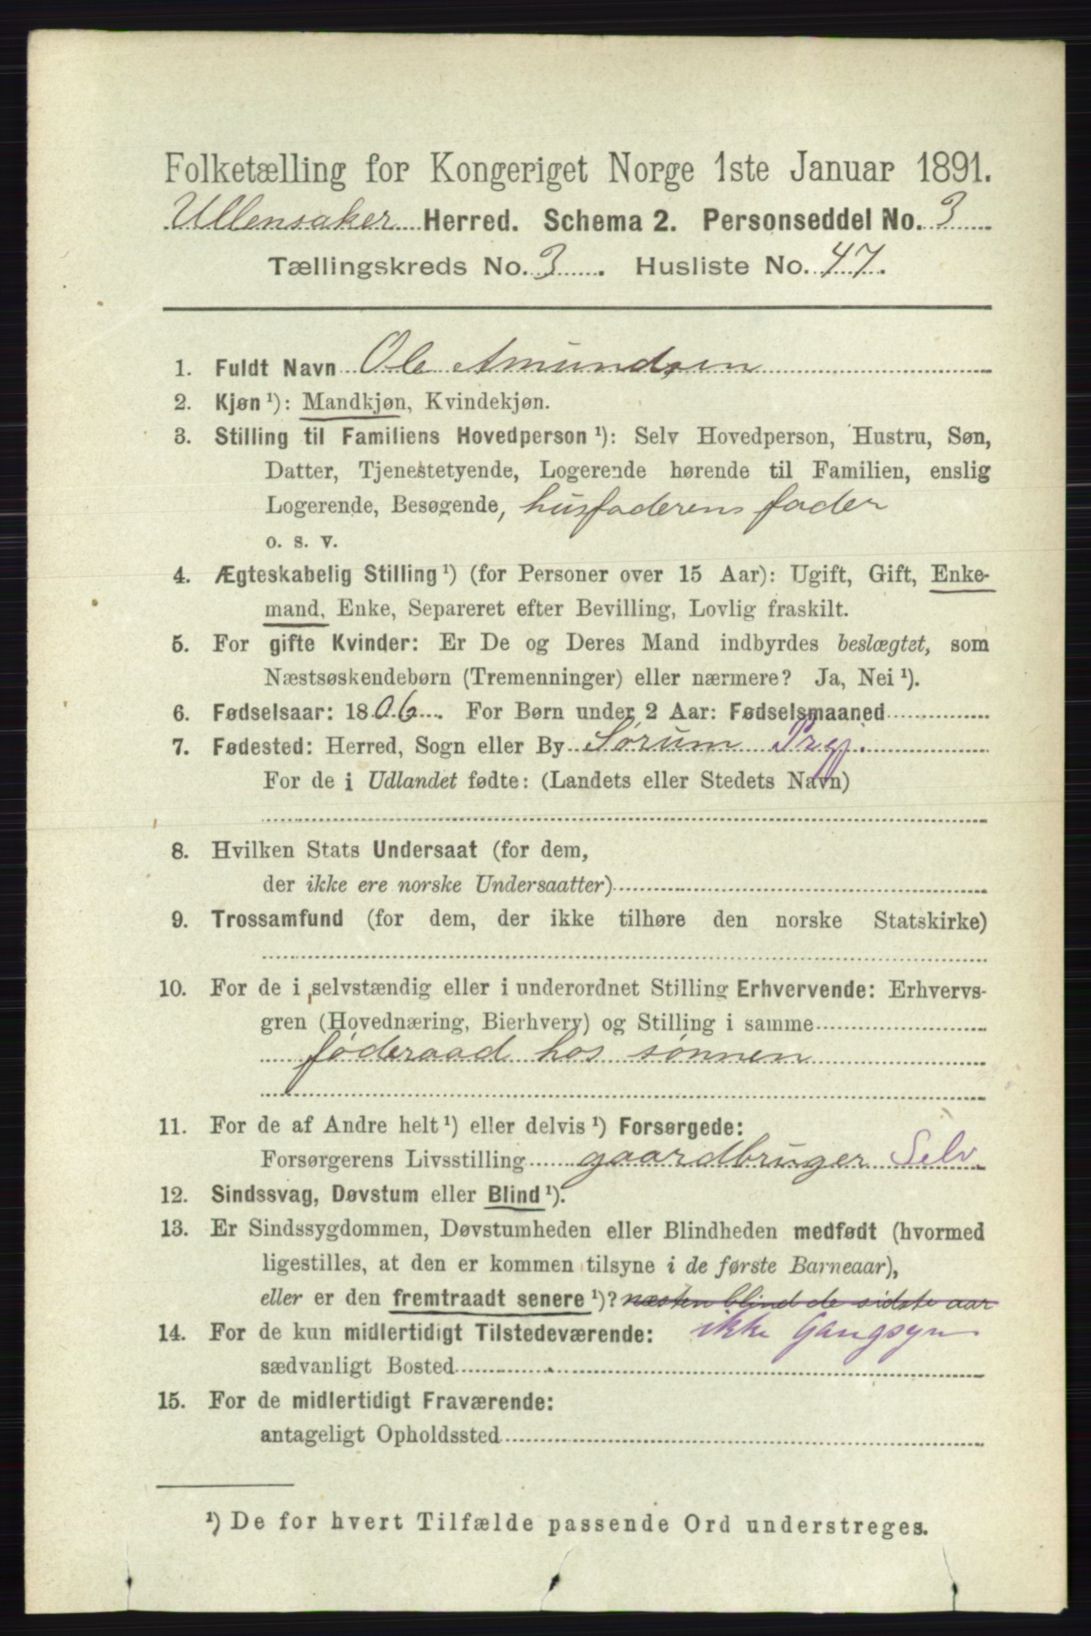 Folketælling for Kongeriget Norge 1ste Januar 1891.
Ullensaker Herred. Schema 2. Personseddel No. 3
Tællingskreds No. 3. Husliste No. 47.
1. Fuldt Navn Ole Amundsen
2. Kjøn ¹): Mandkjøn, Kvindekjøn.
3. Stilling til Familiens Hovedperson ¹): Selv Hovedperson, Hustru, Søn,
Datter, Tjenestetyende, Logerende hørende til Familien, enslig
Logerende, Besøgende, husfaderens fader
o. s. v.
4. Ægteskabelig Stilling ¹) (for Personer over 15 Aar): Ugift, Gift, Enke-
mand, Enke, Separeret efter Bevilling, Lovlig fraskilt.
5. For gifte Kvinder: Er De og Deres Mand indbyrdes beslægtet, som
Næstsøskendebørn (Tremenninger) eller nærmere? Ja, Nei ¹).
6. Fødselsaar: 1806. For Børn under 2 Aar: Fødselsmaaned
7. Fødested: Herred, Sogn eller By Sørum Prgj.
For de i Udlandet fødte: (Landets eller Stedets Navn)
8. Hvilken Stats Undersaat (for dem,
der ikke ere norske Undersaatter)
9. Trossamfund (for dem, der ikke tilhøre den norske Statskirke)
10. For de i selvstændig eller i underordnet Stilling Erhvervende: Erhvervs-
gren (Hovednæring, Bierhverv) og Stilling i samme
føderaad hos sønnen
11. For de af Andre helt ¹) eller delvis ¹) Forsørgede:
Forsørgerens Livsstilling gaardbruger Selv
12. Sindssvag, Døvstum eller Blind ¹).
13. Er Sindssygdommen, Døvstumheden eller Blindheden medfødt (hvormed
ligestilles, at den er kommen tilsyne i de første Barneaar),
eller er den fremtraadt senere ¹)? næsten blind de sidste aar
14. For de kun midlertidigt Tilstedeværende: ikke Gangsyn
sædvanligt Bosted
15. For de midlertidigt Fraværende:
antageligt Opholdssted
¹) De for hvert Tilfælde passende Ord understreges.